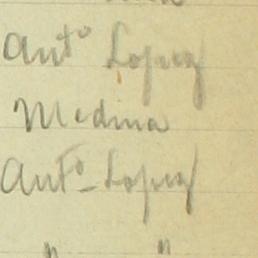 Anto Lopez
Medina
Anto - Lopez
" "